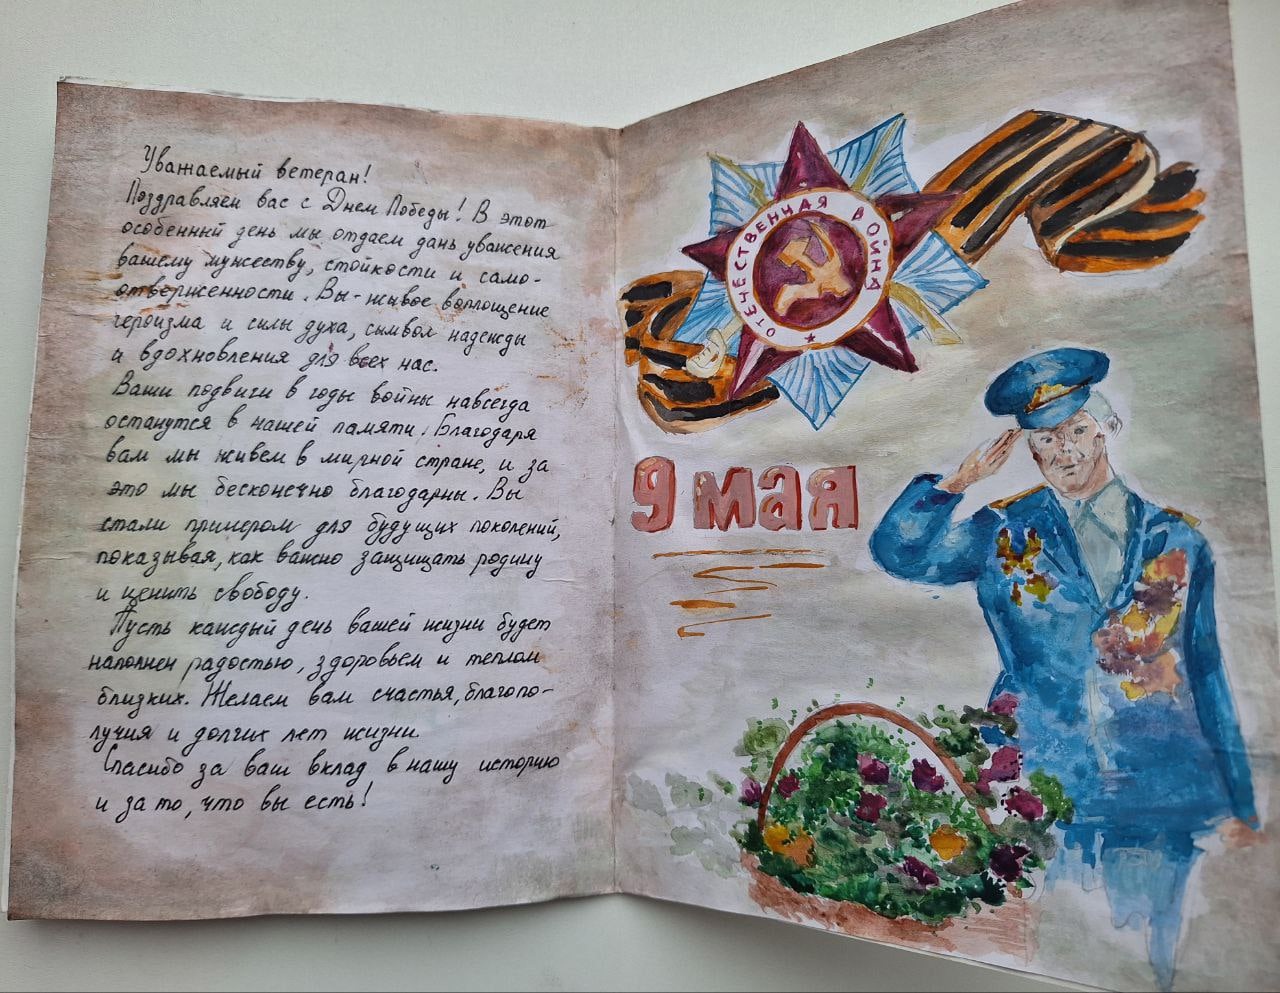 Уважаемый ветеран!
Поздравляем вас с Днем Победы! В этот
особенный день мы отдаем дань уважения
вашему мужеству, стойкости и само-
отверженности. Вы - живое воплощение
героизма и силы духа, символ надежды
и вдохновления для всех нас.
Ваши подвиги в годы войны навсегда
останутся в нашей памяти. Благодаря
вам мы живем в мирной стране, и за
это мы бесконечно благодарны. Вы
стали примером для будущих поколений,
показывая, как важно защищать родину
и ценить свободу.
Пусть каждый день вашей жизни будет
наполнен радостью, здоровьем и теплом
близких. Желаем вам счастья, благопо-
лучия и долгих лет жизни.
Спасибо за ваш вклад в нашу историю
и за то, что вы есть!
ОТЕЧЕСТВЕННАЯ ВОЙНА
9 мая